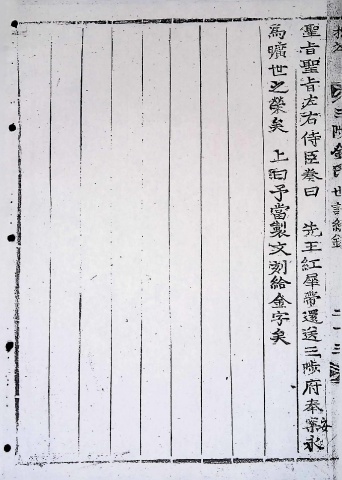 三陟金氏世譜總錄 二一三
聖旨聖旨左右侍臣奏曰 先王紅犀帶還送三陟府奉案永
爲曠世之榮矣 上曰予當製文刻給金字矣